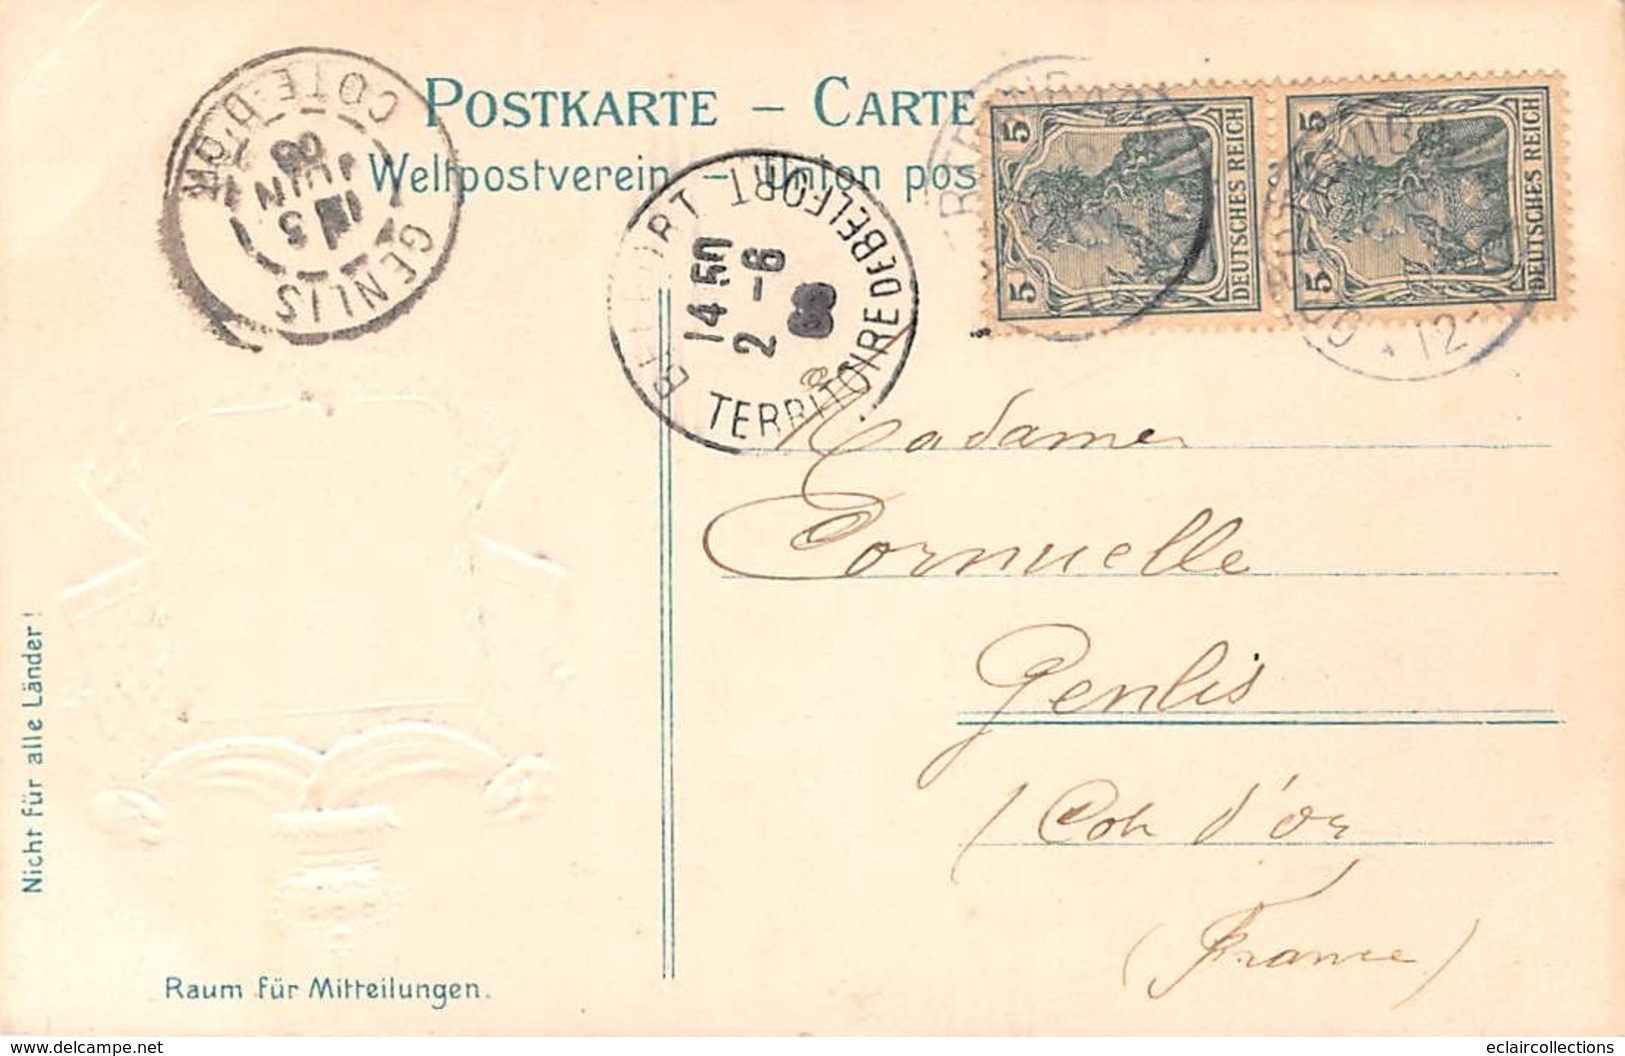 POSTKARTE – CARTE
Weltpostverein – Union pos
GENLIS
COTE-D'OR
5
JUIN
08
BELFORT
BELFORT
14 50
2-6
08
TERRITOIRE DE BELFORT
5
5
DEUTSCHES REICH
5
5
DEUTSCHES REICH
Madame
Cornuelle
Genlis
(Cote d'or
(France)
Nicht für alle Länder!
Raum für Mitteilungen.
Delcampe.net
eclaircollections